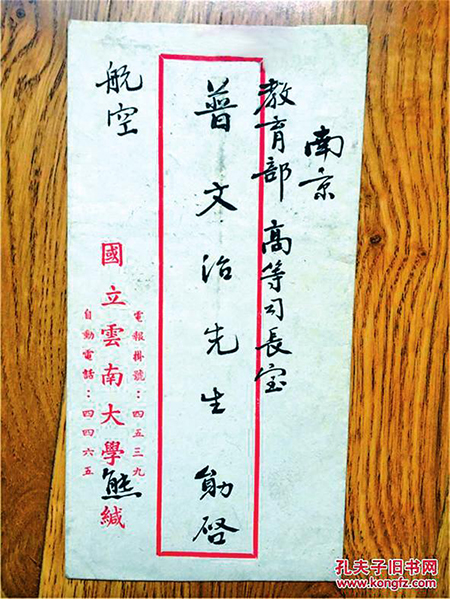 南京
教育部 高等司長室
普文治先生勛啓
電報掛號：四五三九
國立雲南大學熊緘
自動電話：四四六五
航空
孔夫子旧书网
www.kongfz.com